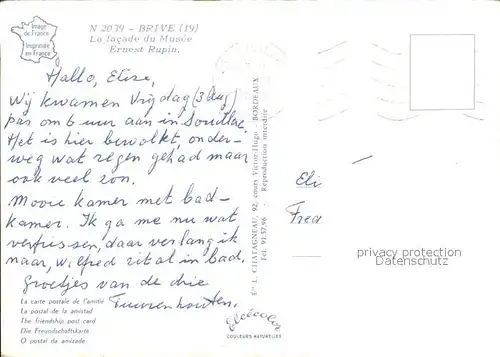 Image
de France
Imprimée
en France
N 2039 - BRIVE (19)
La façade du Musée
Ernest Rupin.
Hallo, Elise,
Wij kwamen vrijdag (3 Aug)
pas om 6 uur aan in Souillac.
Het is hier bewolkt, onder-
weg wat regen gehad maar
ook veel zon.
Mooie kamer met bad-
kamer. Ik ga me nu wat
verfrissen, daar verlang ik
naar, Wilfred zit al in bad.
Groetjes van de drie
La carte postale de l'amitié
La postal de la amistad
The friendship post card
Die Freundschaftskarte
O postal da amizade
Ets L. CHATAGNEAU, 92, cours Victor-Hugo - BORDEAUX
Tél. 91.57.96 - Reproduction interdite
COULEURS NATURELLES
Eli
Fred
privacy protection
Datenschutz